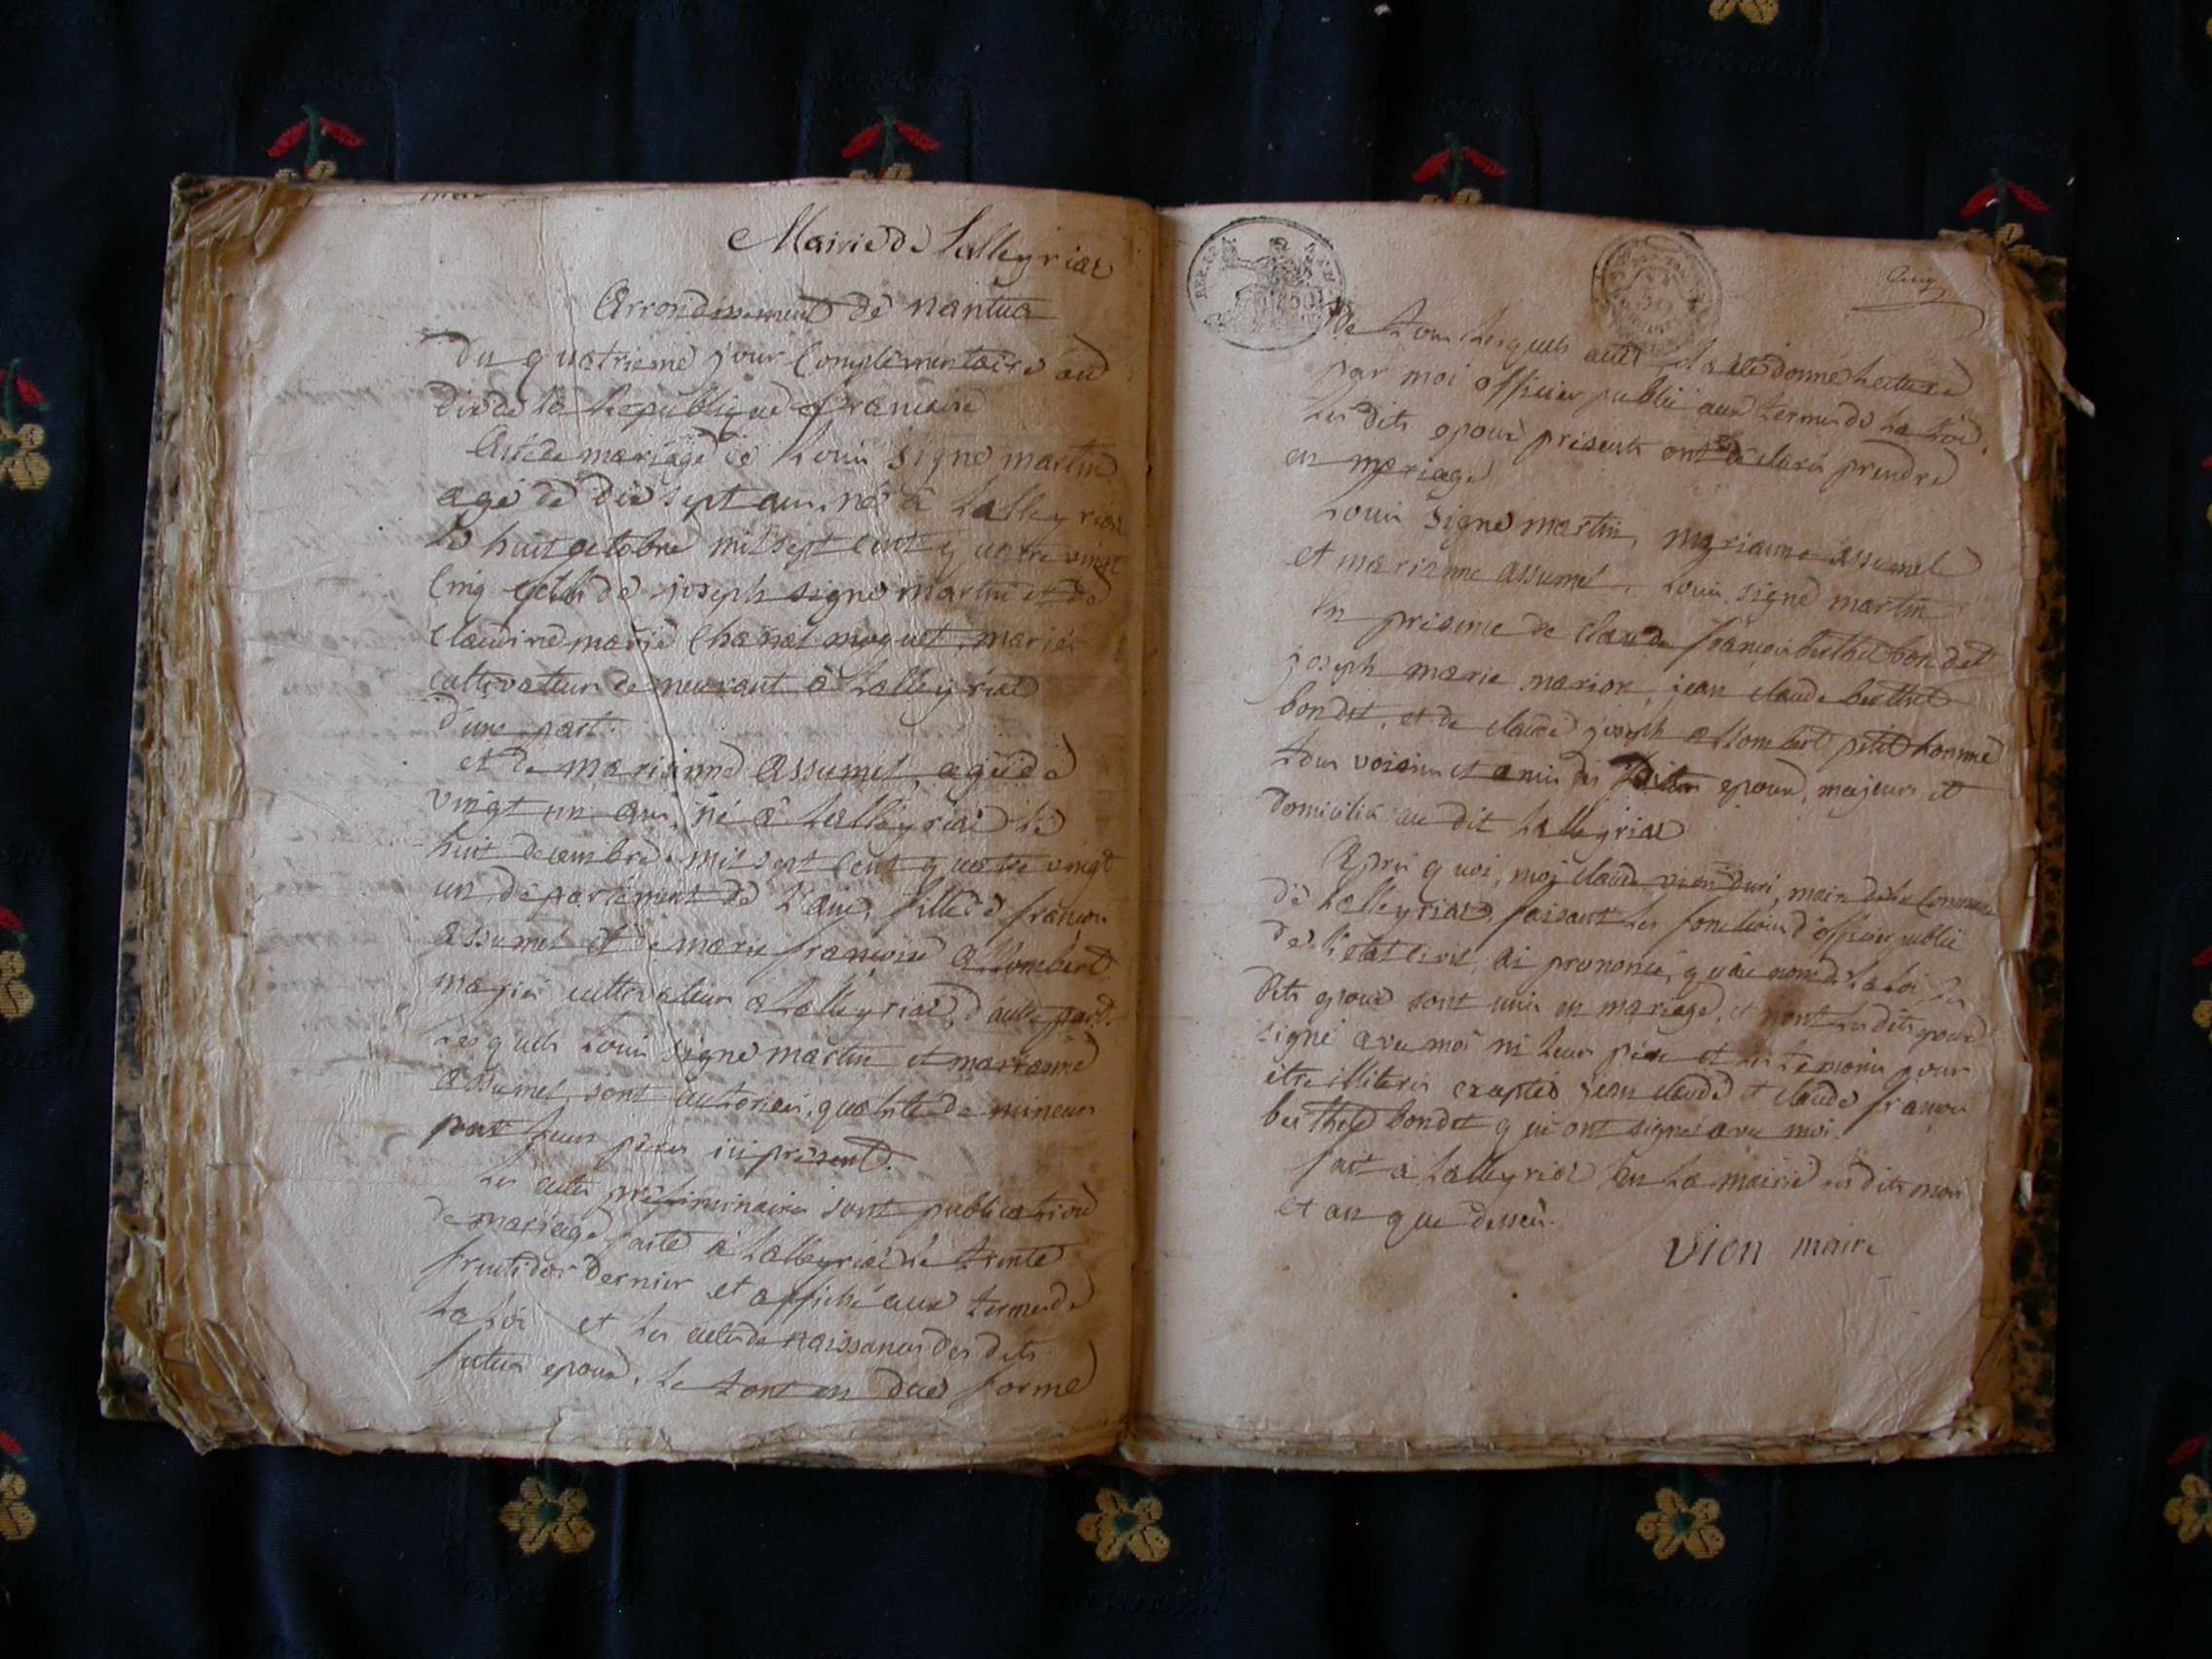 Mairie de Lalleyriat
Arrondissement de nantua
du quatrieme jour Complementaire an
dix de la Republique francaise
Acte de mariage de Louis signe martin
agé de dix sept ans, né a Lalleyriat
le huit octobre mil sept cent quatre vingt
Cinq fils de joseph signe martin et de
Claudine marie Chanal moquet, mariés
cultivateurs demeurant a Lalleyriat
d'une part.
et de marianne assumel, agée de
vingt un ans, né a Lalleyriat le
huit decembre mil sept cent quatre vingt
un departement de l'ain, fille de francois
assumel et de marie françoise allombert
mariés cultivateurs a Lalleyriat, d'autre part.
Lesquels Louis signe martin et marianne
assumel sont autorisés, qualité de mineurs
par leurs peres ici present.
Les actes preliminaires sont publication
de mariage faite a Lalleyriat le trente
fructidor dernier et affiché aux termes de
la Loi et les actes de naissances des dits
futurs epoux, le tout en due forme
de tous lesquels actes il a été donné lecture
par moi officier public aux termes de la Loi,
les dits epoux presents ont declaré prendre
en mariage
Louis signe martin, marianne assumel
et marianne assumel, Louis signe martin
En presence de claude francois berthet bondet
joseph marie marion, jean claude berthet
bondet, et de claude joseph allombert petit homme
tous voisins et amis des epoux, majeurs et
domiciliés au dit Lalleyriat
Après quoi, moi claude vion duri, maire de la Commune
de Lalleyriat faisant les fonctions d'officier public
de l'etat civil, ai prononcé, qu'au nom de la Loi les
dits epoux sont unis en mariage, et n'ont les dits epoux
signé avec moi ni leurs peres et les temoins pour
etre illiterés exceptés jean claude et claude francois
berthet bondet qui ont signé avec moi.
fait a Lalleyriat en la mairie les dits mois
et an que dessus.
vion maire